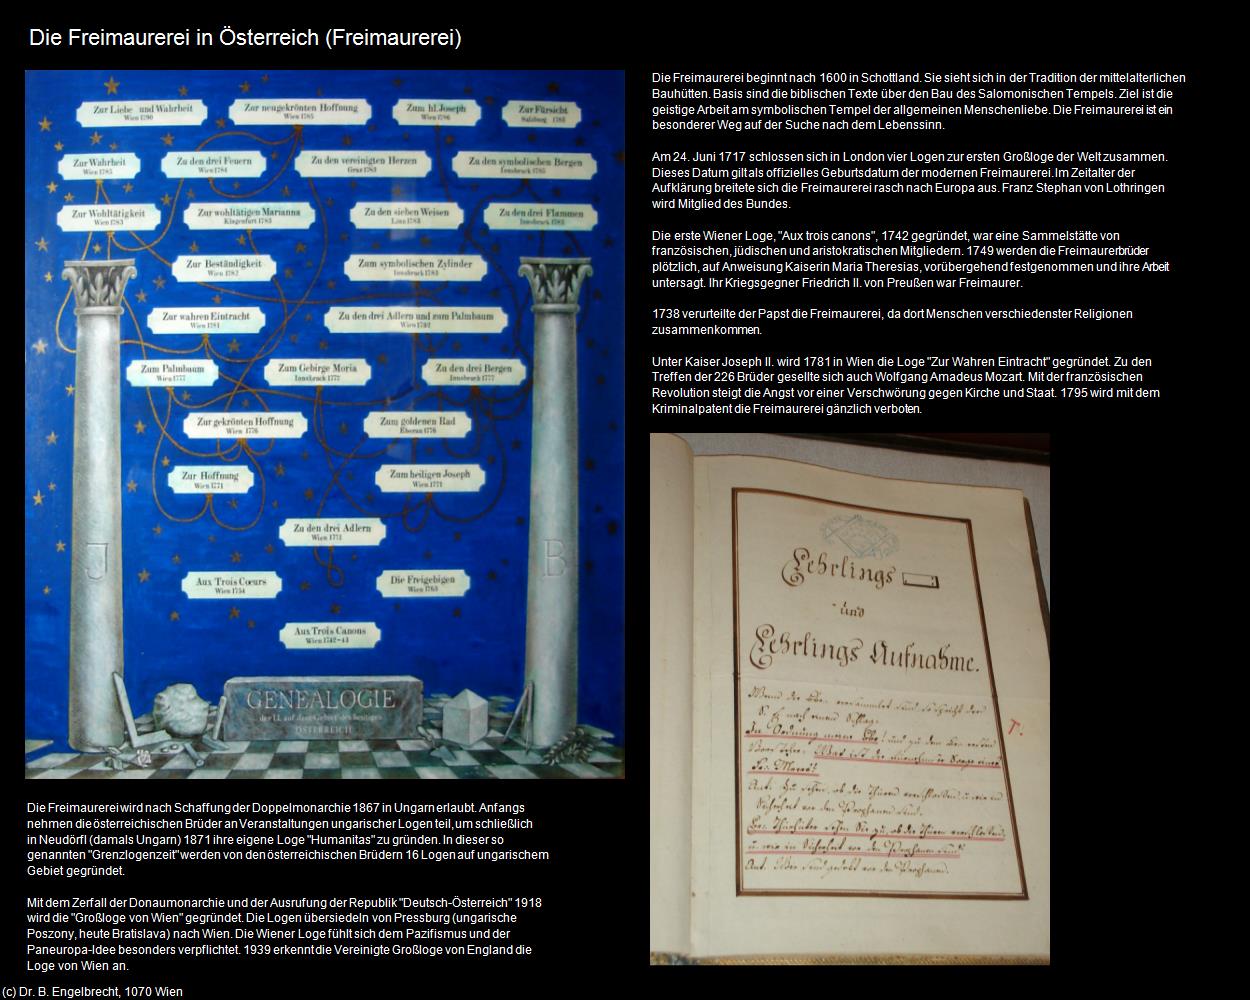 Die Freimaurerei in Österreich (Freimaurerei)
Zur Liebe und Wahrheit
Wien 1790
Zur neugekrönten Hoffnung
Wien 1785
Zum hl. Joseph
Wien 1786
Zur Fürsicht
Salzburg 1783
Zur Wahrheit
Wien 1785
Zu den drei Feuern
Wien 1784
Zu den vereinigten Herzen
Graz 1783
Zu den symbolischen Bergen
Innsbruck 1785
Zur Wohltätigkeit
Wien 1783
Zur wohltätigen Marianna
Klagenfurt 1783
Zu den sieben Weisen
Linz 1783
Zu den drei Flammen
Innsbruck
Zur Beständigkeit
Wien 1782
Zum symbolischen Zylinder
Innsbruck 1783
Zur wahren Eintracht
Wien 1781
Zu den drei Adlern und zum Palmbaum
Wien 1782
Zum Palmbaum
Wien 1777
Zum Gebirge Moria
Innsbruck 1777
Zu den drei Bergen
Innsbruck 1777
Zur gekrönten Hoffnung
Wien 1776
Zum goldenen Rad
Eberau 1776
Zur Hoffnung
Wien 1771
Zum heiligen Joseph
Wien 1771
Zu den drei Adlern
Wien 1771
J
B
Aux Trois Cœurs
Wien 1754
Die Freigebigen
Wien 1763
Aux Trois Canons
Wien 1742-43
GENEALOGIE
der LL auf dem Gebiet des heutigen
ÖSTERREICH
Die Freimaurerei wird nach Schaffung der Doppelmonarchie 1867 in Ungarn erlaubt. Anfangs
nehmen die österreichischen Brüder an Veranstaltungen ungarischer Logen teil, um schließlich
in Neudörfl (damals Ungarn) 1871 ihre eigene Loge "Humanitas" zu gründen. In dieser so
genannten "Grenzlogenzeit" werden von den österreichischen Brüdern 16 Logen auf ungarischem
Gebiet gegründet.
Mit dem Zerfall der Donaumonarchie und der Ausrufung der Republik "Deutsch-Österreich" 1918
wird die "Großloge von Wien" gegründet. Die Logen übersiedeln von Pressburg (ungarische
Poszony, heute Bratislava) nach Wien. Die Wiener Loge fühlt sich dem Pazifismus und der
Paneuropa-Idee besonders verpflichtet. 1939 erkennt die Vereinigte Großloge von England die
Loge von Wien an.
Die Freimaurerei beginnt nach 1600 in Schottland. Sie sieht sich in der Tradition der mittelalterlichen
Bauhütten. Basis sind die biblischen Texte über den Bau des Salomonischen Tempels. Ziel ist die
geistige Arbeit am symbolischen Tempel der allgemeinen Menschenliebe. Die Freimaurerei ist ein
besonderer Weg auf der Suche nach dem Lebenssinn.
Am 24. Juni 1717 schlossen sich in London vier Logen zur ersten Großloge der Welt zusammen.
Dieses Datum gilt als offizielles Geburtsdatum der modernen Freimaurerei. Im Zeitalter der
Aufklärung breitete sich die Freimaurerei rasch nach Europa aus. Franz Stephan von Lothringen
wird Mitglied des Bundes.
Die erste Wiener Loge, "Aux trois canons", 1742 gegründet, war eine Sammelstätte von
französischen, jüdischen und aristokratischen Mitgliedern. 1749 werden die Freimaurerbrüder
plötzlich, auf Anweisung Kaiserin Maria Theresias, vorübergehend festgenommen und ihre Arbeit
untersagt. Ihr Kriegsgegner Friedrich II. von Preußen war Freimaurer.
1738 verurteilte der Papst die Freimaurerei, da dort Menschen verschiedenster Religionen
zusammenkommen.
Unter Kaiser Joseph II. wird 1781 in Wien die Loge "Zur Wahren Eintracht" gegründet. Zu den
Treffen der 226 Brüder gesellte sich auch Wolfgang Amadeus Mozart. Mit der französischen
Revolution steigt die Angst vor einer Verschwörung gegen Kirche und Staat. 1795 wird mit dem
Kriminalpatent die Freimaurerei gänzlich verboten.
Lehrlings
und
Lehrlings Aufnahme.
In Ordnung meine Bbr!
(c) Dr. B. Engelbrecht, 1070 Wien